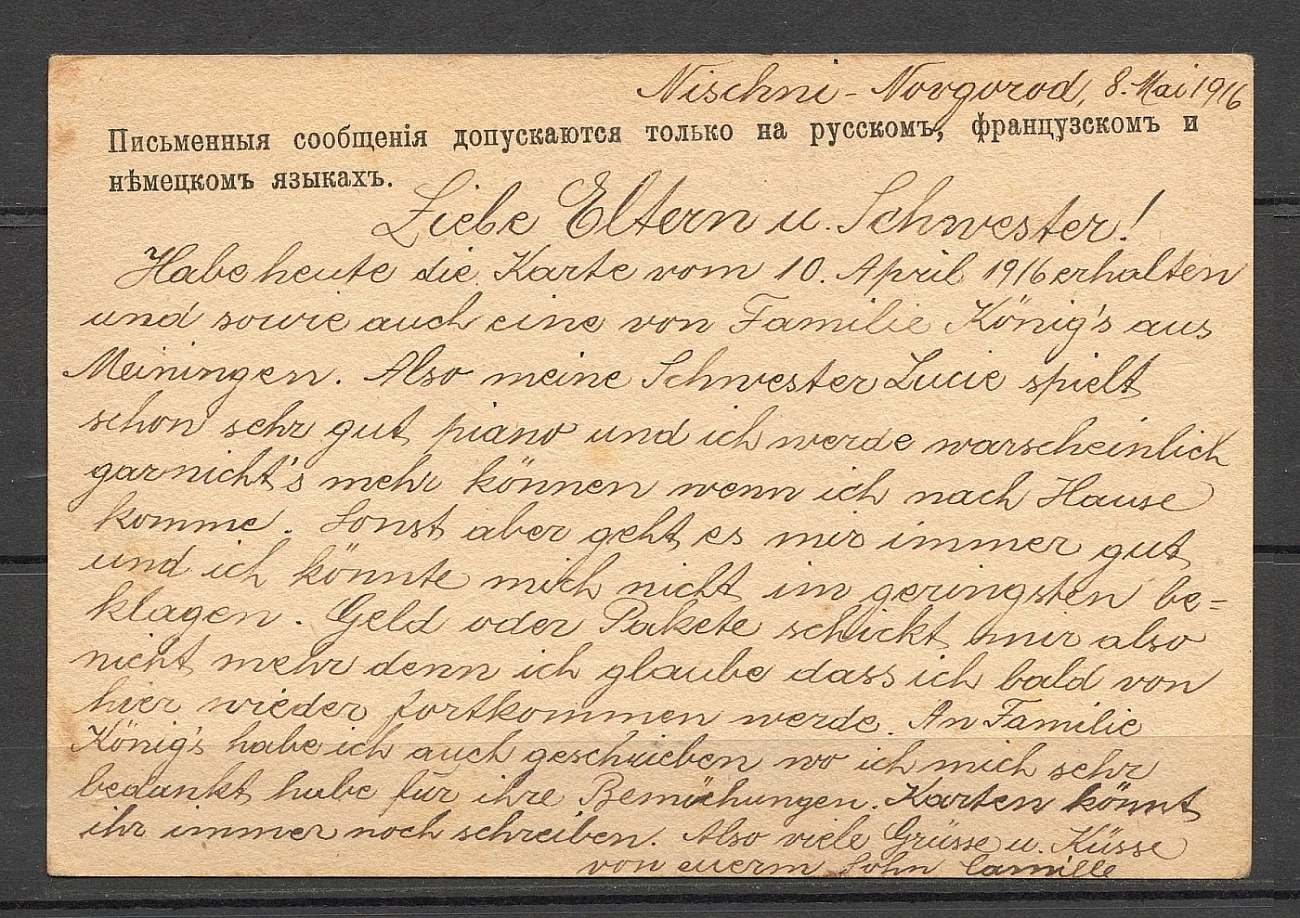 Nischni - Novgorod, 8. Mai 1916
Письменныя сообщенія допускаются только на русскомъ, французскомъ и
нѣмецкомъ языкахъ.
Liebe Eltern u. Schwester!
Habe heute die Karte vom 10. April 1916 erhalten
und sowie auch eine von Familie König's aus
Meiningen. Also meine Schwester Lucie spielt
schon sehr gut piano und ich werde warscheinlich
garnicht's mehr können wenn ich nach Hause
komme. Sonst aber geht es mir immer gut
und ich könnte mich nicht im geringsten be=
klagen. Geld oder Pakete schickt mir also
nicht mehr denn ich glaube dass ich bald von
hier wieder fortkommen werde. An Familie
König's habe ich auch geschrieben wo ich mich sehr
bedankt habe für ihre Bemühungen. Karten könnt
ihr immer noch schreiben. Also viele Grüsse u. Küsse
von euerm Sohn Camille